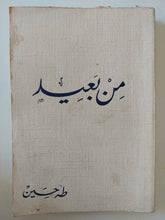 من بعيد
طه حسين